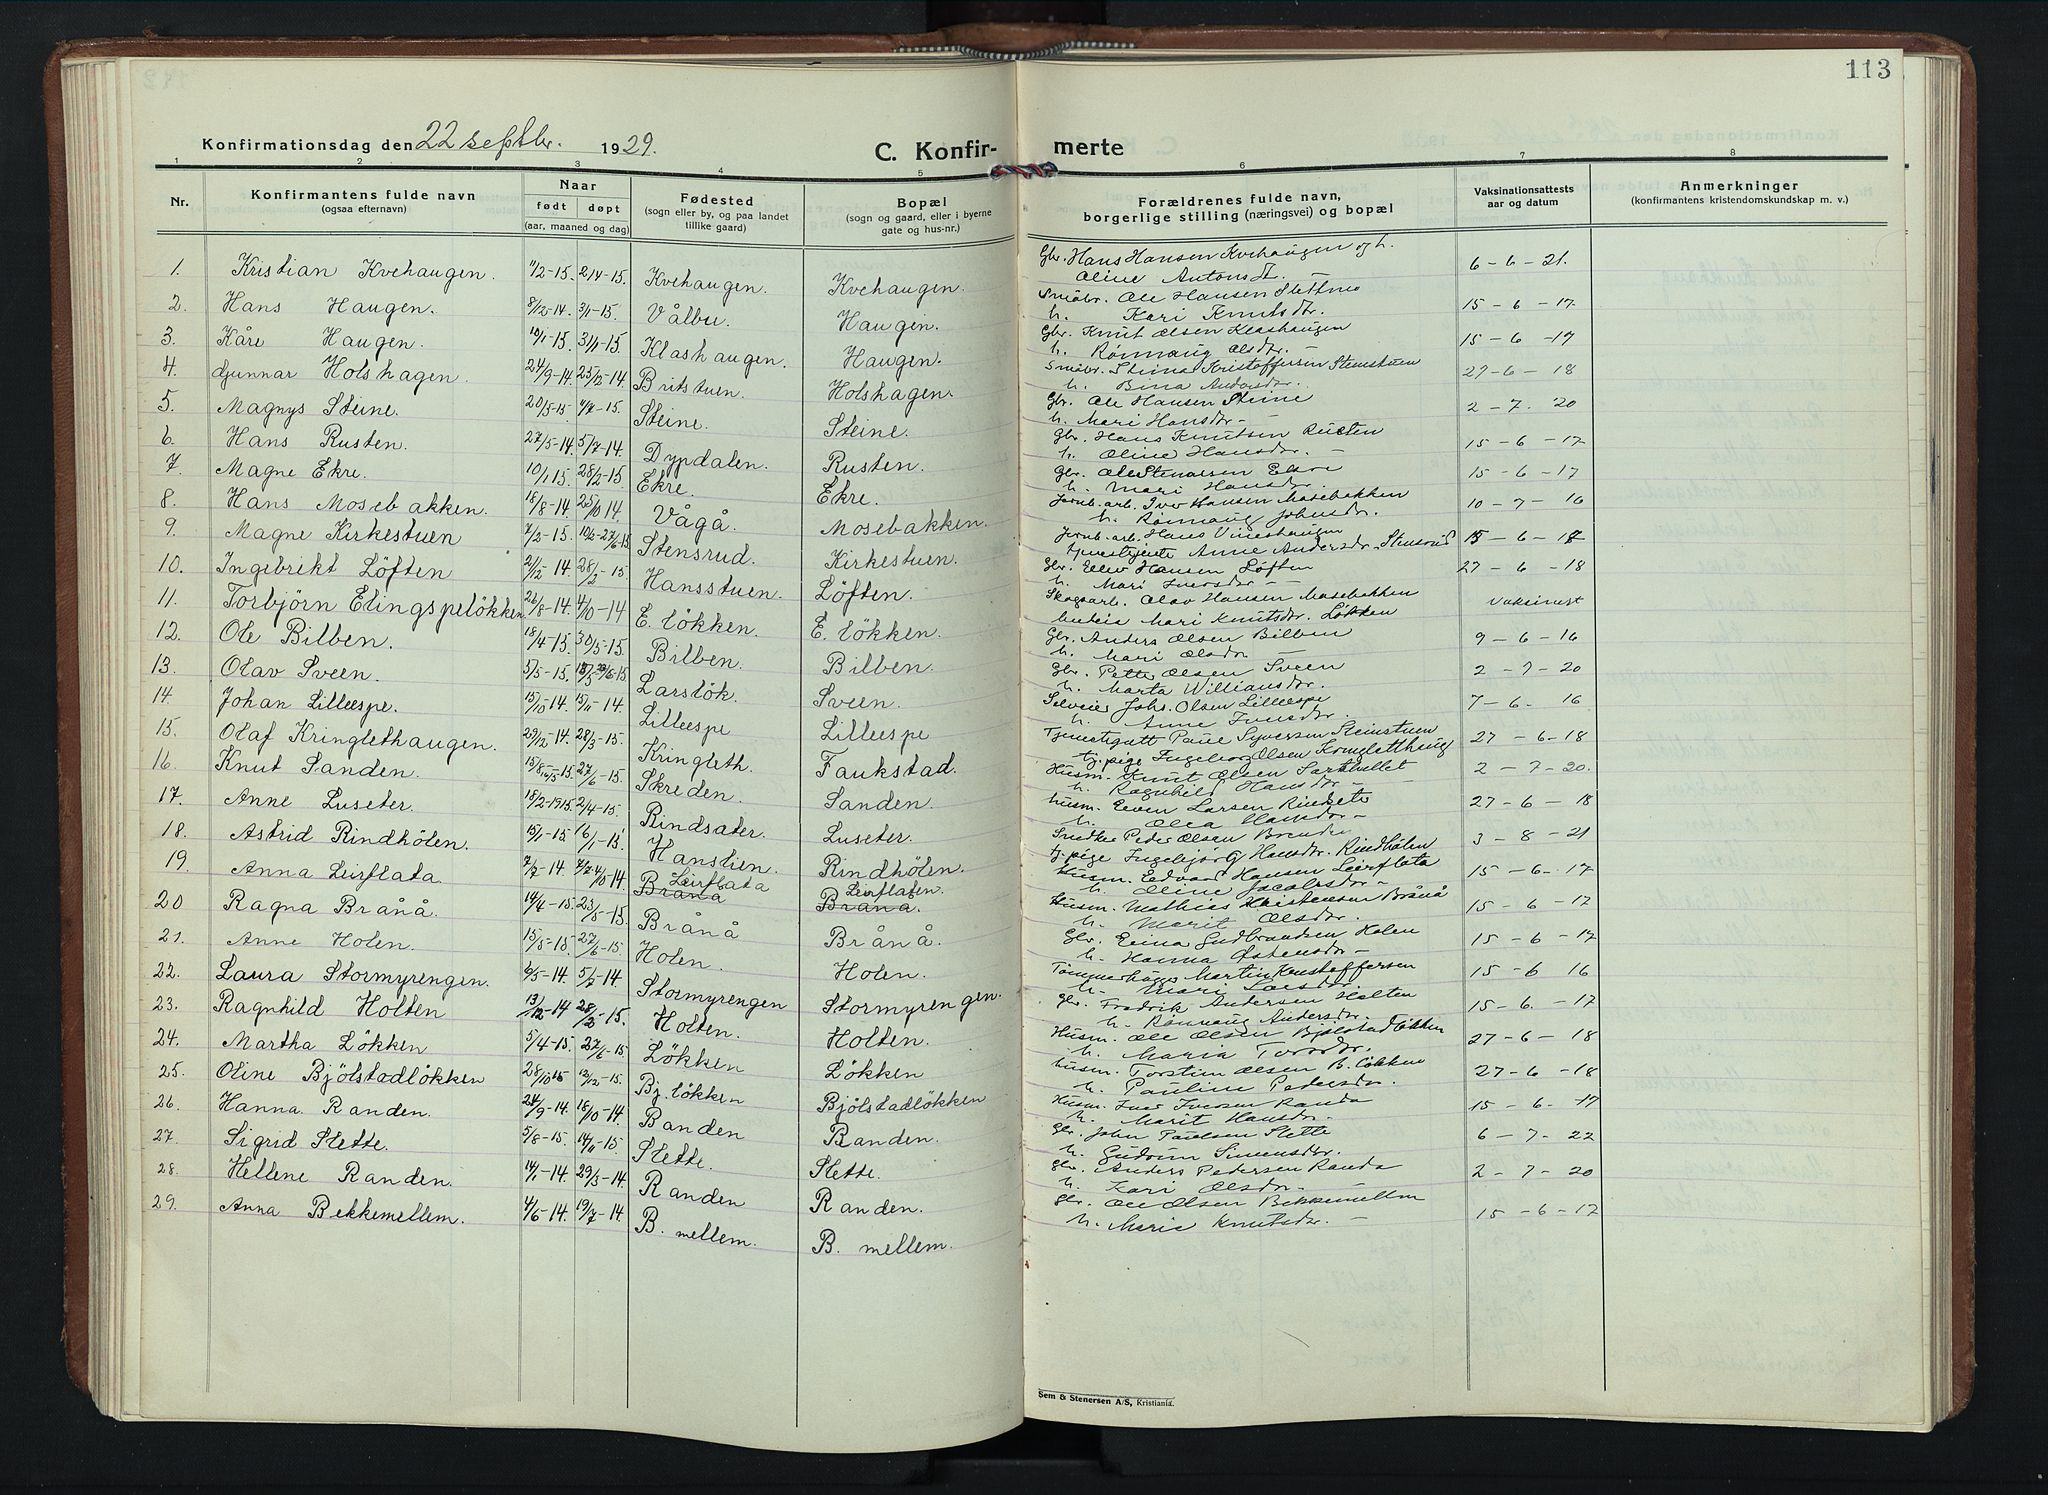 113
Konfirmationsdag den 22 septbr. 1929.
C. Konfir- merte
1 2 3 4 5 6 7 8
Nr.
Konfirmantens fulde navn
(ogsaa efternavn)
Naar
født døpt
(aar, maaned og dag)
Fødested
(sogn eller by, og paa landet
tillike gaard)
Bopæl
(sogn og gaard, eller i byerne
gate og hus-nr.)
Forældrenes fulde navn,
borgerlige stilling (næringsvei) og bopæl
Vaksinationsattests
aar og datum
Anmerkninger
(konfirmantens kristendomskundskap m. v.)
1. Kristian Kvehaugen. 11/2-15. 2/4-15. Kvehaugen. Kvehaugen. Gbr. Hans Hansen Kvehaugen og h. 6-6-21.
Oline Antonsd.
2. Hans Haugen. 8/12-14. 3/1-15. Vålbu. Haugen. Småbr. Ole Hansen Slettmo 15-6-17.
h. Kari Knutsdr.
3. Kåre Haugen. 10/1-15. 31/1-15. Klashaugen. Haugen. Gbr. Knut Olsen Klashaugen 15-6-17
h. Rønnaug Olsdr.
4. Gunnar Holshagen. 24/9-14. 25/12-14. Britstuen. Holshagen. Småbr. Steinar Kristoffersen Stemstuen 27-6-18
h. Bina Andersdr.
5. Magnys Steine. 20/5-15. 4/7-15. Steine. Steine. Gbr. Ole Hansen Steine 2-7-20
h. Mari Hansdr.
6. Hans Rusten. 27/5-14. 5/7-14. Dypdalen. Rusten. Gbr. Hans Knutsen Rusten 15-6-17
h. Oline Hansdr.
7. Magne Ekre. 10/1 15. 28/2-15. Ekre. Ekre. Gbr. Ole Stenassen Ekre 15-6-17
h. Mari Hansdr.
8. Hans Mosebakken. 18/8-14. 25/10 14. Vågå. Mosebakken. Jernb.arb. Ivar Hansen Mosebakken 10-7-16
h. Rønnaug Johnsdr.
9. Magne Kirkestuen 7/2-15. Stensrud. Kirkestuen. Jernb.arb. Hans Vineshaugen 15-6-17
tjenestejente Anne Andersdr. Stensrud
10. Ingebrikt Löften 21/12-14. 28/2-15. Hansstuen. Löften. Gbr. Eilev Hansen Löften 27-6-18
h. Mari Iversdr.
11. Torbjörn Elingspelökken 26/8-14. 4/10-14 E. lökken. E. lökken. Skogsarb. Olav Hansen Mosebakken Vaksinert
Mari Knutsdr. Lökken
12. Ole Bilben. 18/4-15. 30/5-15. Bilben. Bilben. Gbr. Anders Olsen Bilben 9-6-16
h. Mari Olsdr
13. Olav Sveen. 5/5-15. Larslök. Sveen. Gbr. Petter Olsen Sveen 2-7-20
h. Marta Williamsdr.
14. Johan Lilleespe. 15/10-14. 15/11-14. Lilleespe Lilleespe Selveier Johs. Olsen Lilleespe 7-6-16
h. Anne Iversdr.
15. Olaf Kringlethaugen. 29/12-14. 28/3-15. Kringleth. Faukstad. Tjenestegutt Paul Syversen Steinstuen 27-6-18
tj.pige Ingeborg Olsen Kringletthaug
16. Knut Sanden. 27/6-15. Skreden. Sanden. Husm. Knut Olsen 2-7-20.
h. Ragnhild Hansdr.
17. Anne Luseter. 18/2-1915. 2/4-15. Rindsäter. Luseter. husm. Even Larsen Rindseter 27-6-18
h. Olea Hansdr.
18. Astrid Rindhölen. 15/1-15. 16/1-15. Hanstien. Rindhölen. Snedker Peder Olsen Brenden 3-8-21
tj.pige Ingebjørg Hansdr. Rindhölen
19. Anna Leirflata 7/7-14. 4/10-14. Leirflata Leirflaten. Husm. Edvard Hansen Leirflata 15-6-17
Brånå Brånå. h. Oline Jacobsdr.
20 Ragna Brånå. 14/4-15. 23/5-15. Brånå Brånå. Husm. Mathias Kristensen Brånå 15-6-17
h. Marit Olsdr.
21. Anne Holen. 15/5-15. 27/6-15. Holen. Holen. Gbr. Einar Gudbrandsen Holen 15-6-17
h. Hanna Østensdr.
22. Laura Stormyrengen. 6/5-14. 5/7-14. Stormyrengen Stormyrengen. Tømmerhugger Martin Kristoffersen 15-6 16
h. Mari Larsdr.
23. Ragnhild Holten 13/12-14 28/2-15. Holten. Holten. Gbr. Fredrik Andersen Holten 15-6-17
h. Rønnaug Andersdr.
24. Martha Lökken 5/4-15. 27/6-15. Lökken Lökken Husm. Ole Olsen Bjølstadløkken 27-6-18
h. Maria Torsdr.
25. Oline Bjölstadlökken 28/10 15 12/12-15. Bj. lökken Bjölstadlökken husm. Torstein Olsen B. Løkken 27-6-18
h. Pauline Pedersdr.
26. Hanna Randen. 24/9-14. 18/10-14. Randen Randen. Husm. Iver Iversen Randen 15-6-17
h. Marit Hansdr.
27. Sigrid Slette. 5/8-15. 14/11-15. Slette. Slette. Gbr. John Paulsen Slette 6-7-22
h. Gudrun Simensdr.
28. Hellene Randen. 14/1-14. 29/3-14. Randen Randen. Gbr. Anders Pedersen Randen 2-7-20
h. Kari Olsdr.
29. Anna Bekkemellem. 4/6-14. 19/7-14. B. mellem. B. mellem. Gbr. Ole Olsen Bekkemellem 15-6-17
h. Marie Knutsdr.
Sem & Stenersen A/S, Kristiania.